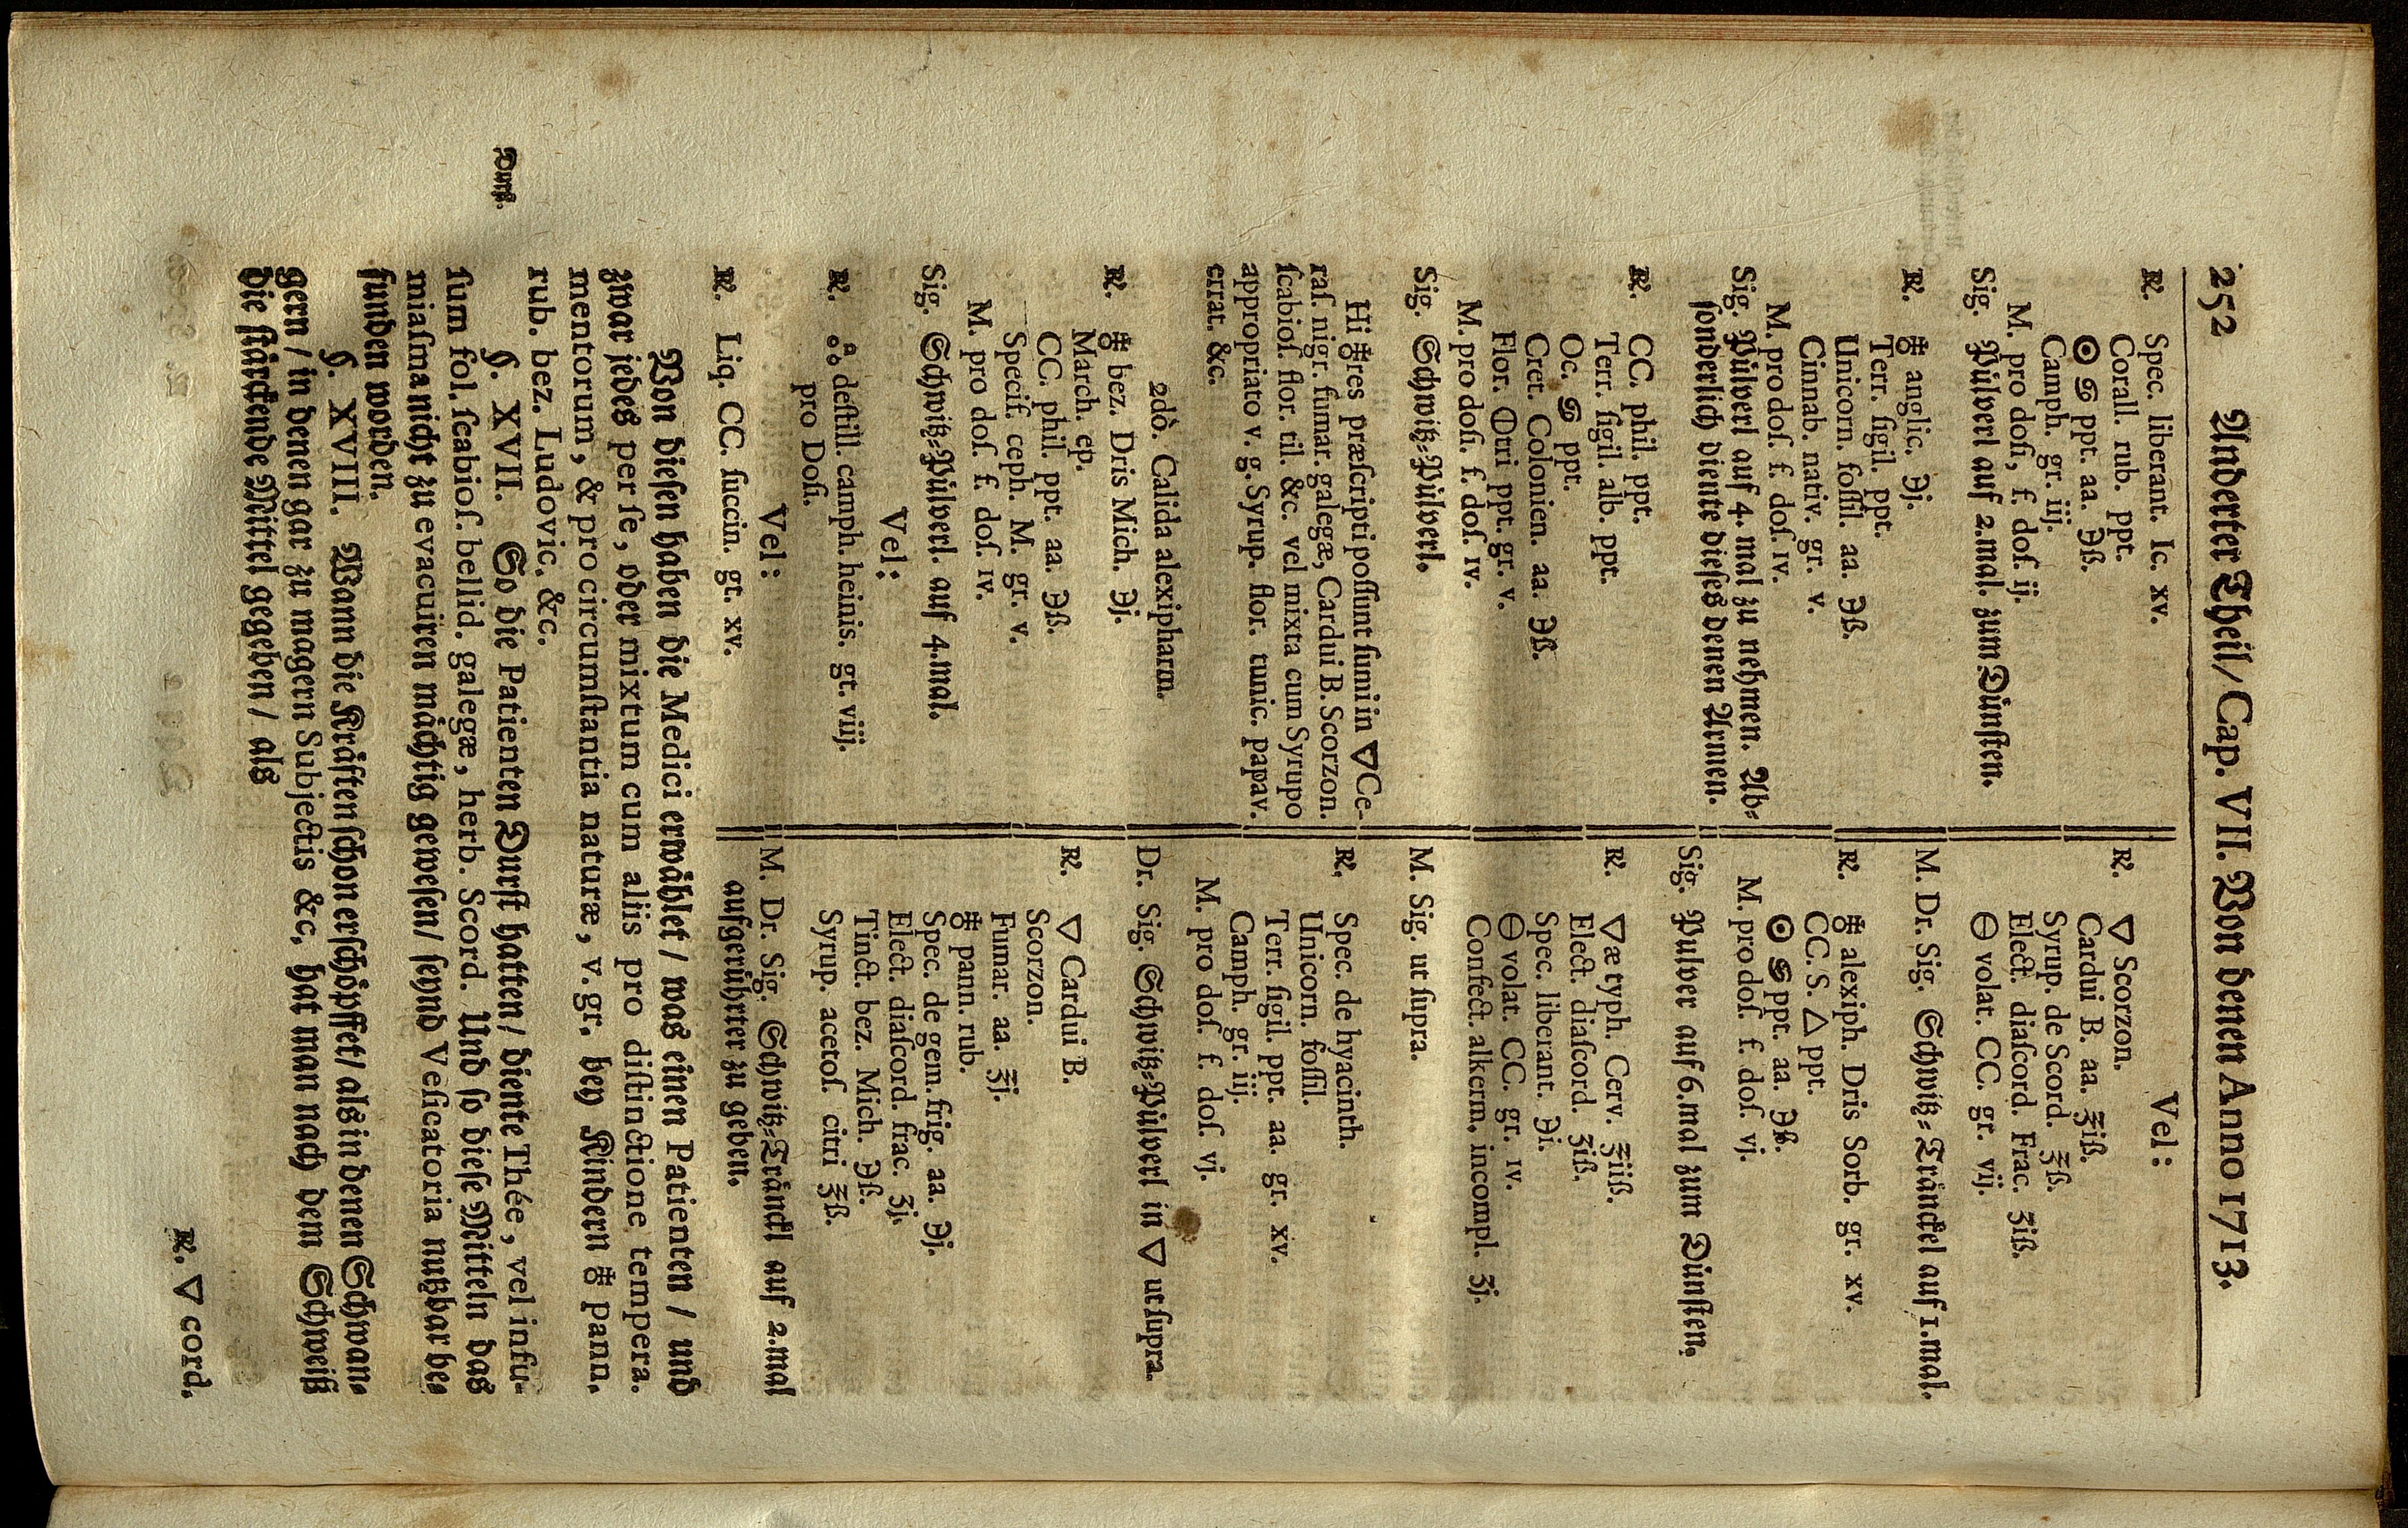 252 Anderter Theil/ Cap. VII. Von denen Anno 1713.
℞. Spec. liberant. Ic. xv.
Corall. rub. ppt.
☉ ♋ ppt. aa. ℈ß.
Camph. gr. iij.
M. pro dosi, f. dos. ij.
Sig. Pülverl auf 2.mal. zum Dünsten.
℞. 🜿 anglic. ℈j.
Terr. sigil. ppt.
Unicorn. fossil. aa. ℈ß.
Cinnab. nativ. gr. v.
M. pro dos. f. dos. IV.
Sig. Pülverl auf 4. mal zu nehmen. Ab-
sonderlich diente dieses denen Armen.
℞. CC. phil. ppt.
Terr. sigil. alb. ppt.
Oc. ♋ ppt.
Cret. Colonien. aa. ℈ß.
Flor. 🜕tri ppt. gr. v.
M. pro dosi. f. dos. IV.
Sig. Schwitz-Pülverl.
Hi res præscripti possunt sumi in ▽Ce-
ras. nigr. fumar. galegæ, Cardui B. Scorzon.
scabios. flor. til. &c. vel mixta cum Syrupo
appropriato v. g. Syrup. flor. tunic. papav.
errat. &c.
2dò. Calida alexipharm.
℞. bez. Dris Mich. ℈j.
March. ep.
CC. phil. ppt. aa. ℈ß.
Specif. ceph. M. gr. v.
M. pro dos. f. dos. IV.
Sig. Schwitz-Pülverl. auf 4.mal.
Vel:
℞. destill. camph. heinis. gt. viij.
pro Dosi.
Vel:
℞. Liq. CC. succin. gt. xv.
Vel:
℞. ▽ Scorzon.
Cardui B. aa. ℥iß.
Syrup. de Scord. ℥ß.
Elect. diascord. Frac. ʒiß.
⊖ volat. CC. gr. vij.
M. Dr. Sig. Schwitz-Tränckel auf 1.mal.
℞. alexiph. Dris Sorb. gr. xv.
CC. S. △ ppt.
☉ ♋ ppt. aa. ℈ß.
M. pro dos. f. dos. vj.
Sig. Pulver auf 6.mal zum Dünsten.
℞. ▽æ typh. Cerv. ℥iiß.
Elect. diascord. ʒiß.
Spec. liberant. ℈i.
⊖ volat. CC. gr. IV.
Confect. alkerm. incompl. ʒj.
M. Sig. ut supra.
℞. Spec. de hyacinth.
Unicorn. fossil.
Terr. sigil. ppt. aa. gr. xv.
Camph. gr. iij.
M. pro dos. f. dos. vj.
Dr. Sig. Schwitz-Pülverl in ▽ ut supra.
℞. ▽ Cardui B.
Scorzon.
Fumar. aa. ℥j.
pann. rub.
Spec. de gem. frig. aa. ℈j.
Elect. diascord. frac. ʒj.
Tinct. bez. Mich. ℈ß.
Syrup. acetos. citri ℥ß.
M. Dr. Sig. Schwitz-Tränckl auf 2.mal
aufgerührter zu geben.
Von diesen haben die Medici erwählet / was einen Patienten / und
zwar jedes per se, oder mixtum cum aliis pro distinctione tempera-
mentorum, & pro circumstantia naturæ, v. gr. bey Kindern pann.
rub. bez. Ludovic. &c.
Durst.
§. XVII. So die Patienten Durst hatten/ diente Thée, vel infu-
sum fol. scabios. bellid. galegæ, herb. Scord. Und so diese Mitteln das
miasma nicht zu evacuiren mächtig gewesen/ seynd Vesicatoria nutzbar be-
funden worden.
§. XVIII. Wann die Kräften schon erschöpffet/ als in denen Schwan-
gern / in denen gar zu magern Subjectis &c. hat man nach dem Schweiß
die stärckende Mittel gegeben / als
℞. ▽ cord.